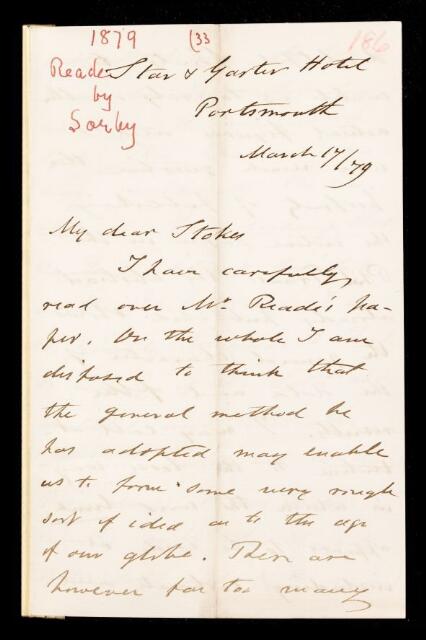 1879 (33 186
Reade
by
Sorby
Star & Garter Hotel
Portsmouth
March 17/79
My dear Stokes
I have carefully
read over Mr. Reade's pa-
per. On the whole I am
disposed to think that
the general method he
has adopted may enable
us to form some very rough
sort of idea as to the age
of our globe. There are
however far too many